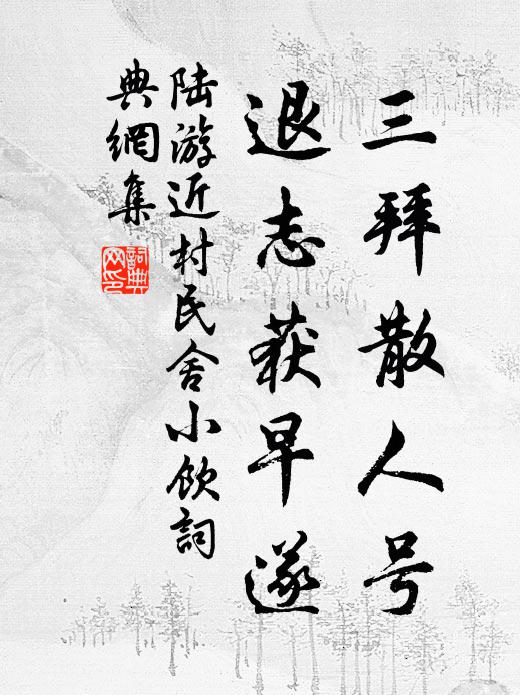 三拜散人号
退志获早遂
陆游近村民舍小饮詞
典網集
詞典網印